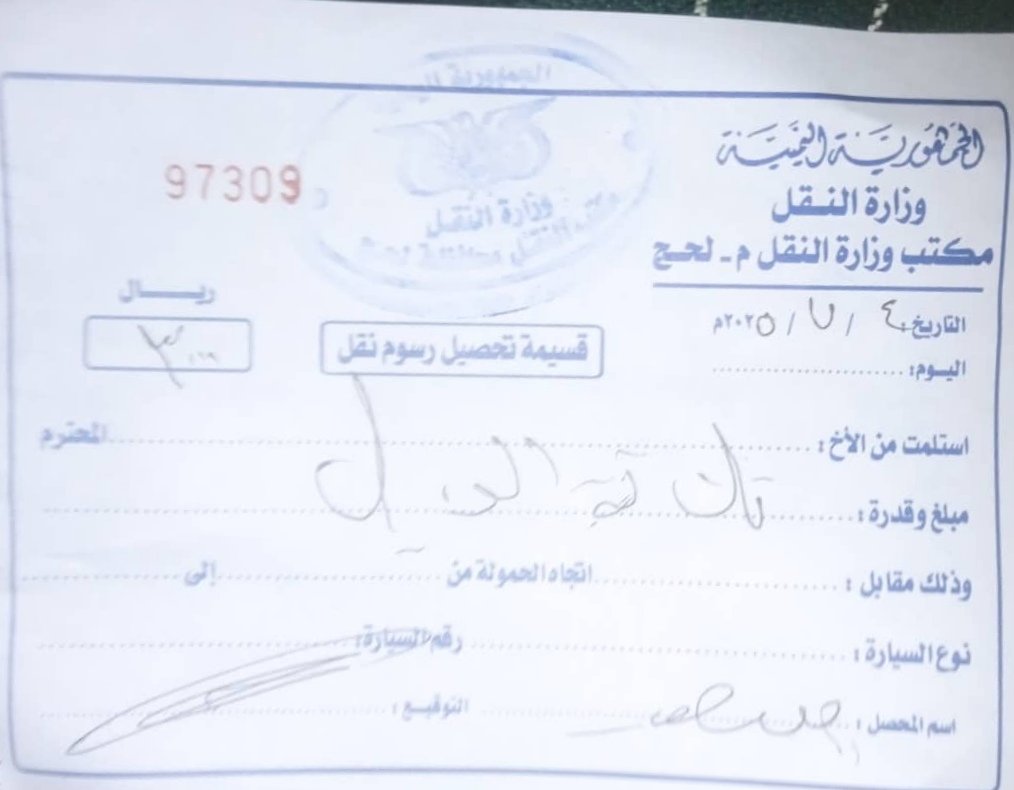 الجمهورية اليمنية
وزارة النقل
مكتب وزارة النقل م - لحج
97309
وزارة النقل
التاريخ: ٤ / ٧ / ٢٠٢٥م
اليوم:
ريال
قسيمة تحصيل رسوم نقل
استلمت من الأخ: المحترم
مبلغ وقدرة:
وذلك مقابل: اتجاه الحمولة من إلى
نوع السيارة: رقم السيارة:
اسم المحصل: التوقيع: